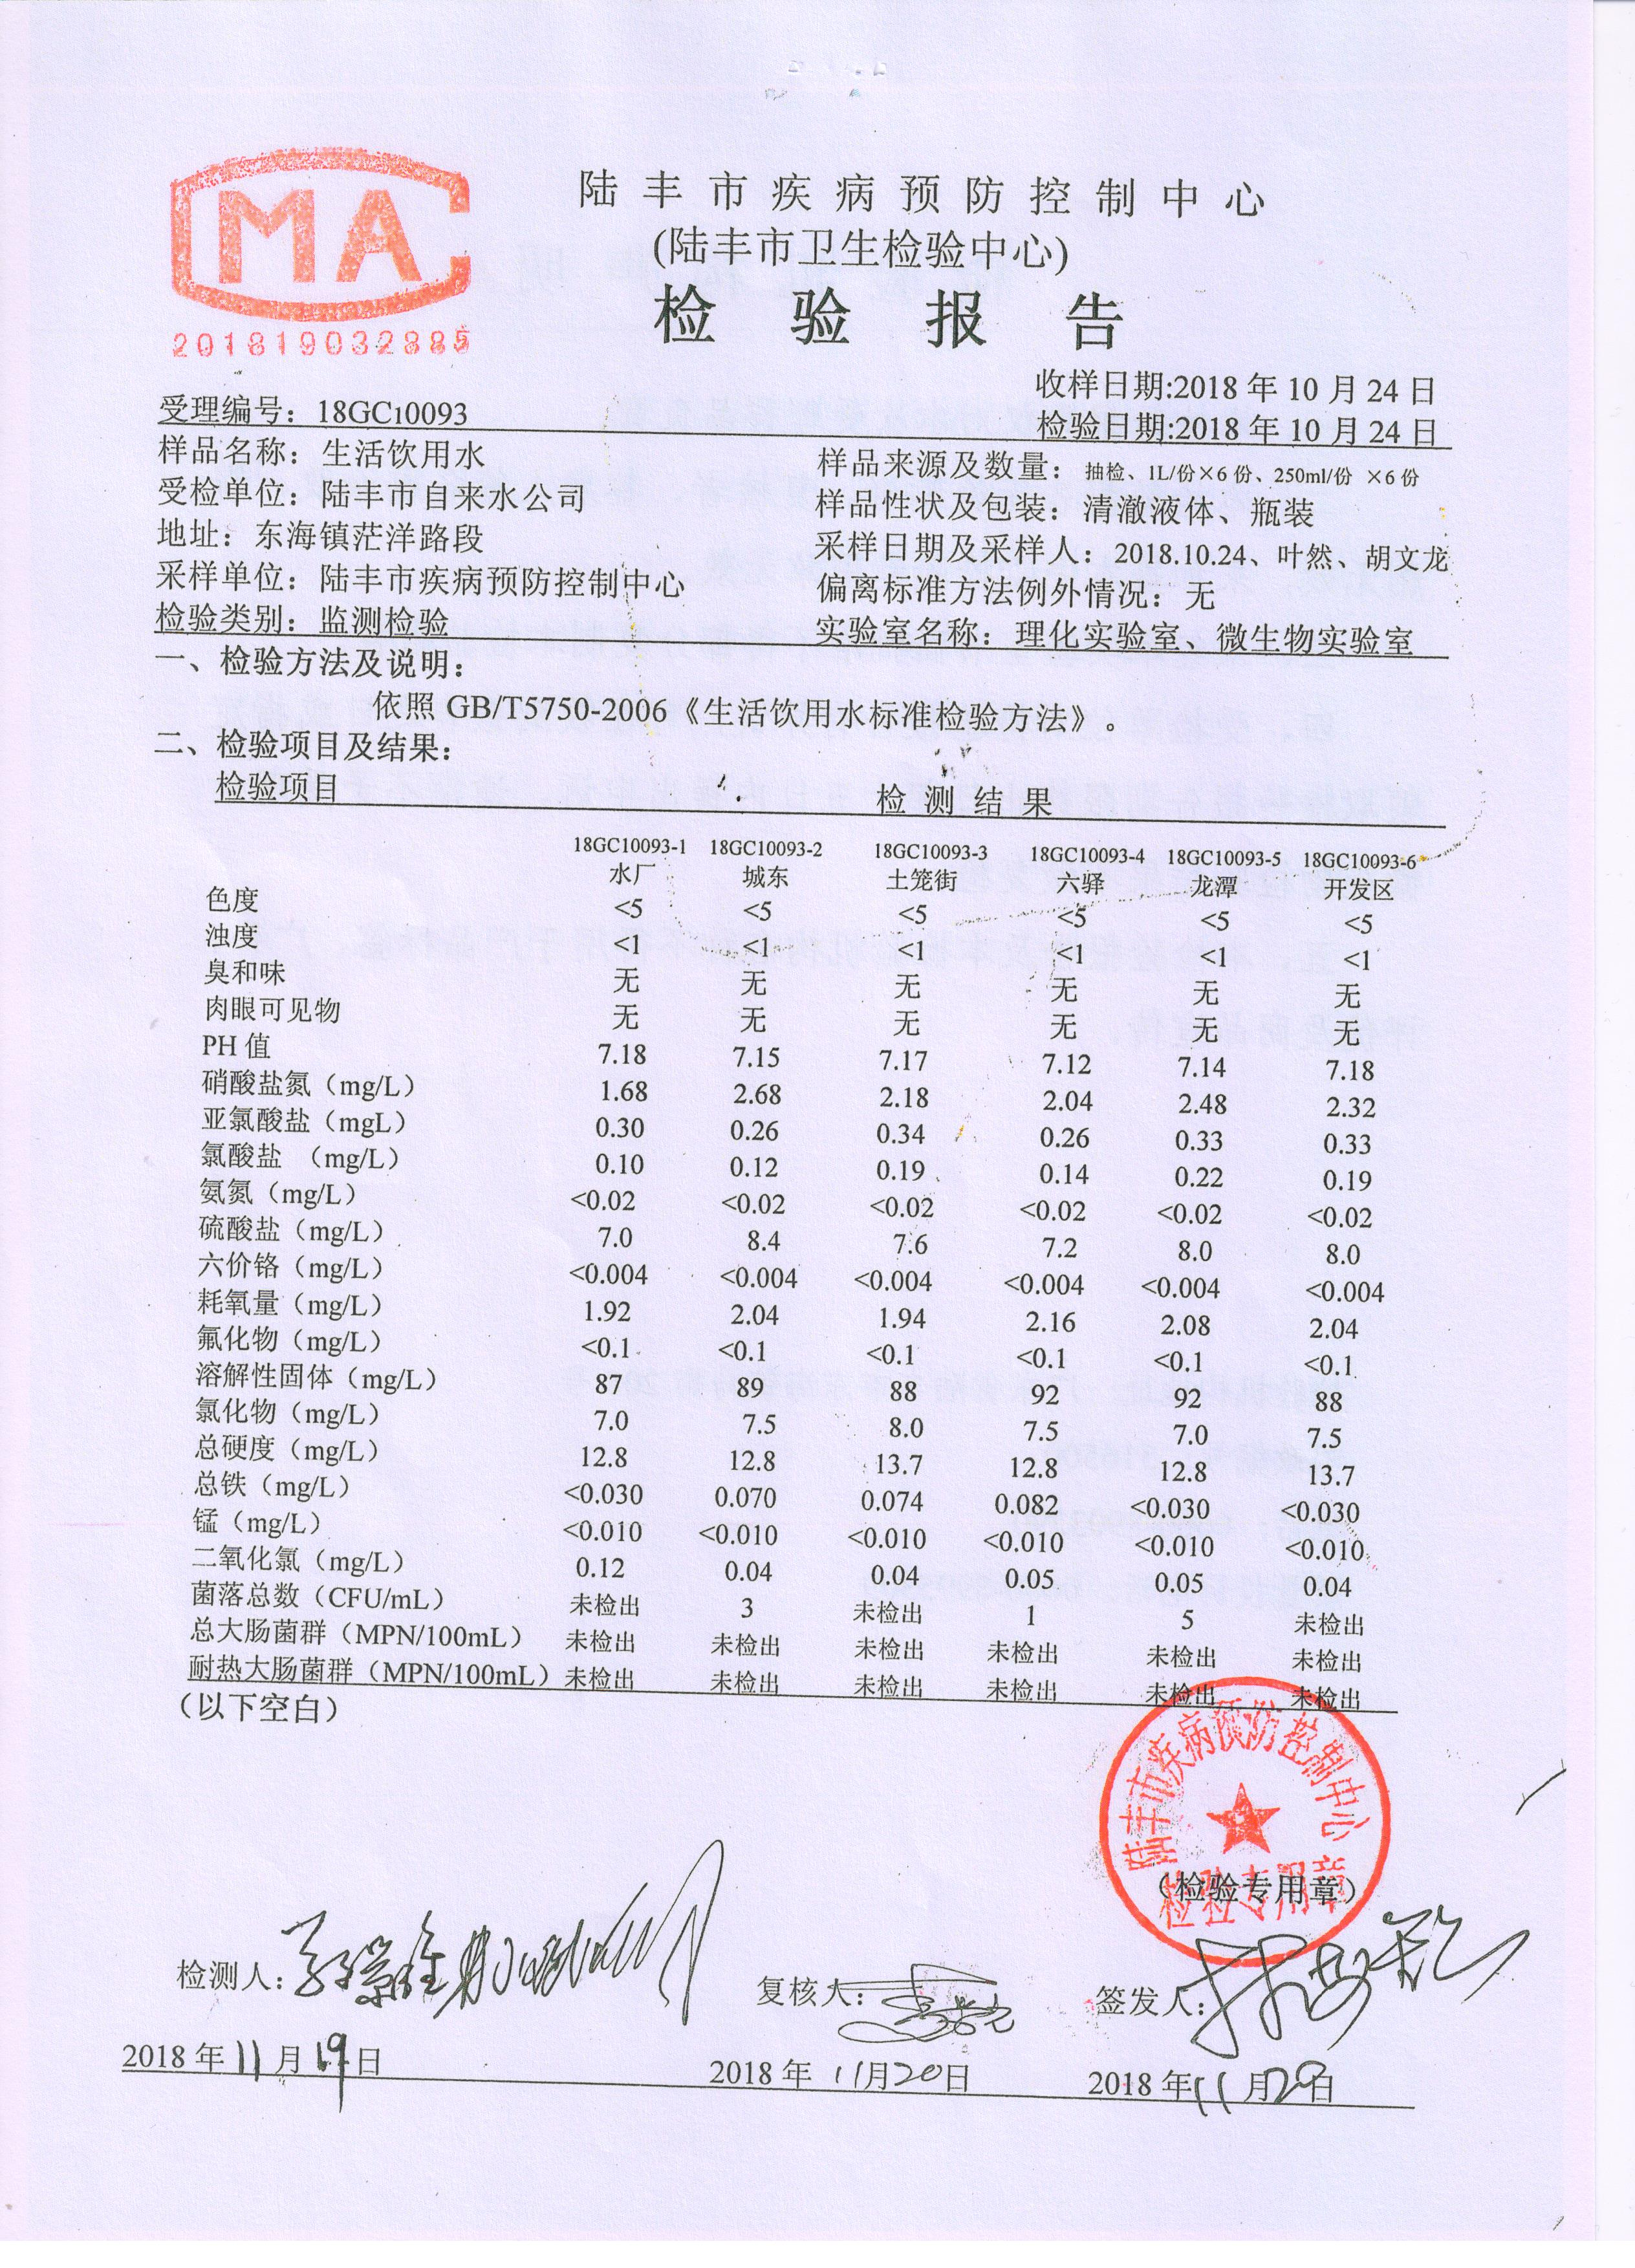 MA
201819032885
陆丰市疾病预防控制中心
(陆丰市卫生检验中心)
检验报告
收样日期:2018年10月24日
受理编号：18GC10093
检验日期:2018年10月24日
样品名称：生活饮用水
样品来源及数量：抽检、1L/份×6份、250ml/份 ×6份
受检单位：陆丰市自来水公司
样品性状及包装：清澈液体、瓶装
地址：东海镇茫洋路段
采样日期及采样人：2018.10.24、叶然、胡文龙
采样单位：陆丰市疾病预防控制中心
偏离标准方法例外情况：无
检验类别：监测检验
实验室名称：理化实验室、微生物实验室
一、检验方法及说明：
依照 GB/T5750-2006《生活饮用水标准检验方法》。
二、检验项目及结果：
检验项目 检测结果
18GC10093-1 18GC10093-2 18GC10093-3 18GC10093-4 18GC10093-5 18GC10093-6
水厂 城东 土笼街 六驿 龙潭 开发区
色度 <5 <5 <5 <5 <5 <5
浊度 <1 <1 <1 <1 <1 <1
臭和味 无 无 无 无 无 无
肉眼可见物 无 无 无 无 无 无
PH值 7.18 7.15 7.17 7.12 7.14 7.18
硝酸盐氮（mg/L） 1.68 2.68 2.18 2.04 2.48 2.32
亚氯酸盐（mgL） 0.30 0.26 0.34 0.26 0.33 0.33
氯酸盐 （mg/L） 0.10 0.12 0.19 0.14 0.22 0.19
氨氮（mg/L） <0.02 <0.02 <0.02 <0.02 <0.02 <0.02
硫酸盐（mg/L） 7.0 8.4 7.6 7.2 8.0 8.0
六价铬（mg/L） <0.004 <0.004 <0.004 <0.004 <0.004 <0.004
耗氧量（mg/L） 1.92 2.04 1.94 2.16 2.08 2.04
氟化物（mg/L） <0.1 <0.1 <0.1 <0.1 <0.1 <0.1
溶解性固体（mg/L） 87 89 88 92 92 88
氯化物（mg/L） 7.0 7.5 8.0 7.5 7.0 7.5
总硬度（mg/L） 12.8 12.8 13.7 12.8 12.8 13.7
总铁（mg/L） <0.030 0.070 0.074 0.082 <0.030 <0.030
锰（mg/L） <0.010 <0.010 <0.010 <0.010 <0.010 <0.010
二氧化氯（mg/L） 0.12 0.04 0.04 0.05 0.05 0.04
菌落总数（CFU/mL） 未检出 3 未检出 1 5 未检出
总大肠菌群（MPN/100mL） 未检出 未检出 未检出 未检出 未检出 未检出
耐热大肠菌群（MPN/100mL） 未检出 未检出 未检出 未检出 未检出 未检出
（以下空白）
陆丰市疾病预防控制中心
检验专用章
（检验专用章）
检测人：
复核人：
签发人：
2018年11月19日
2018年11月20日
2018年11月20日